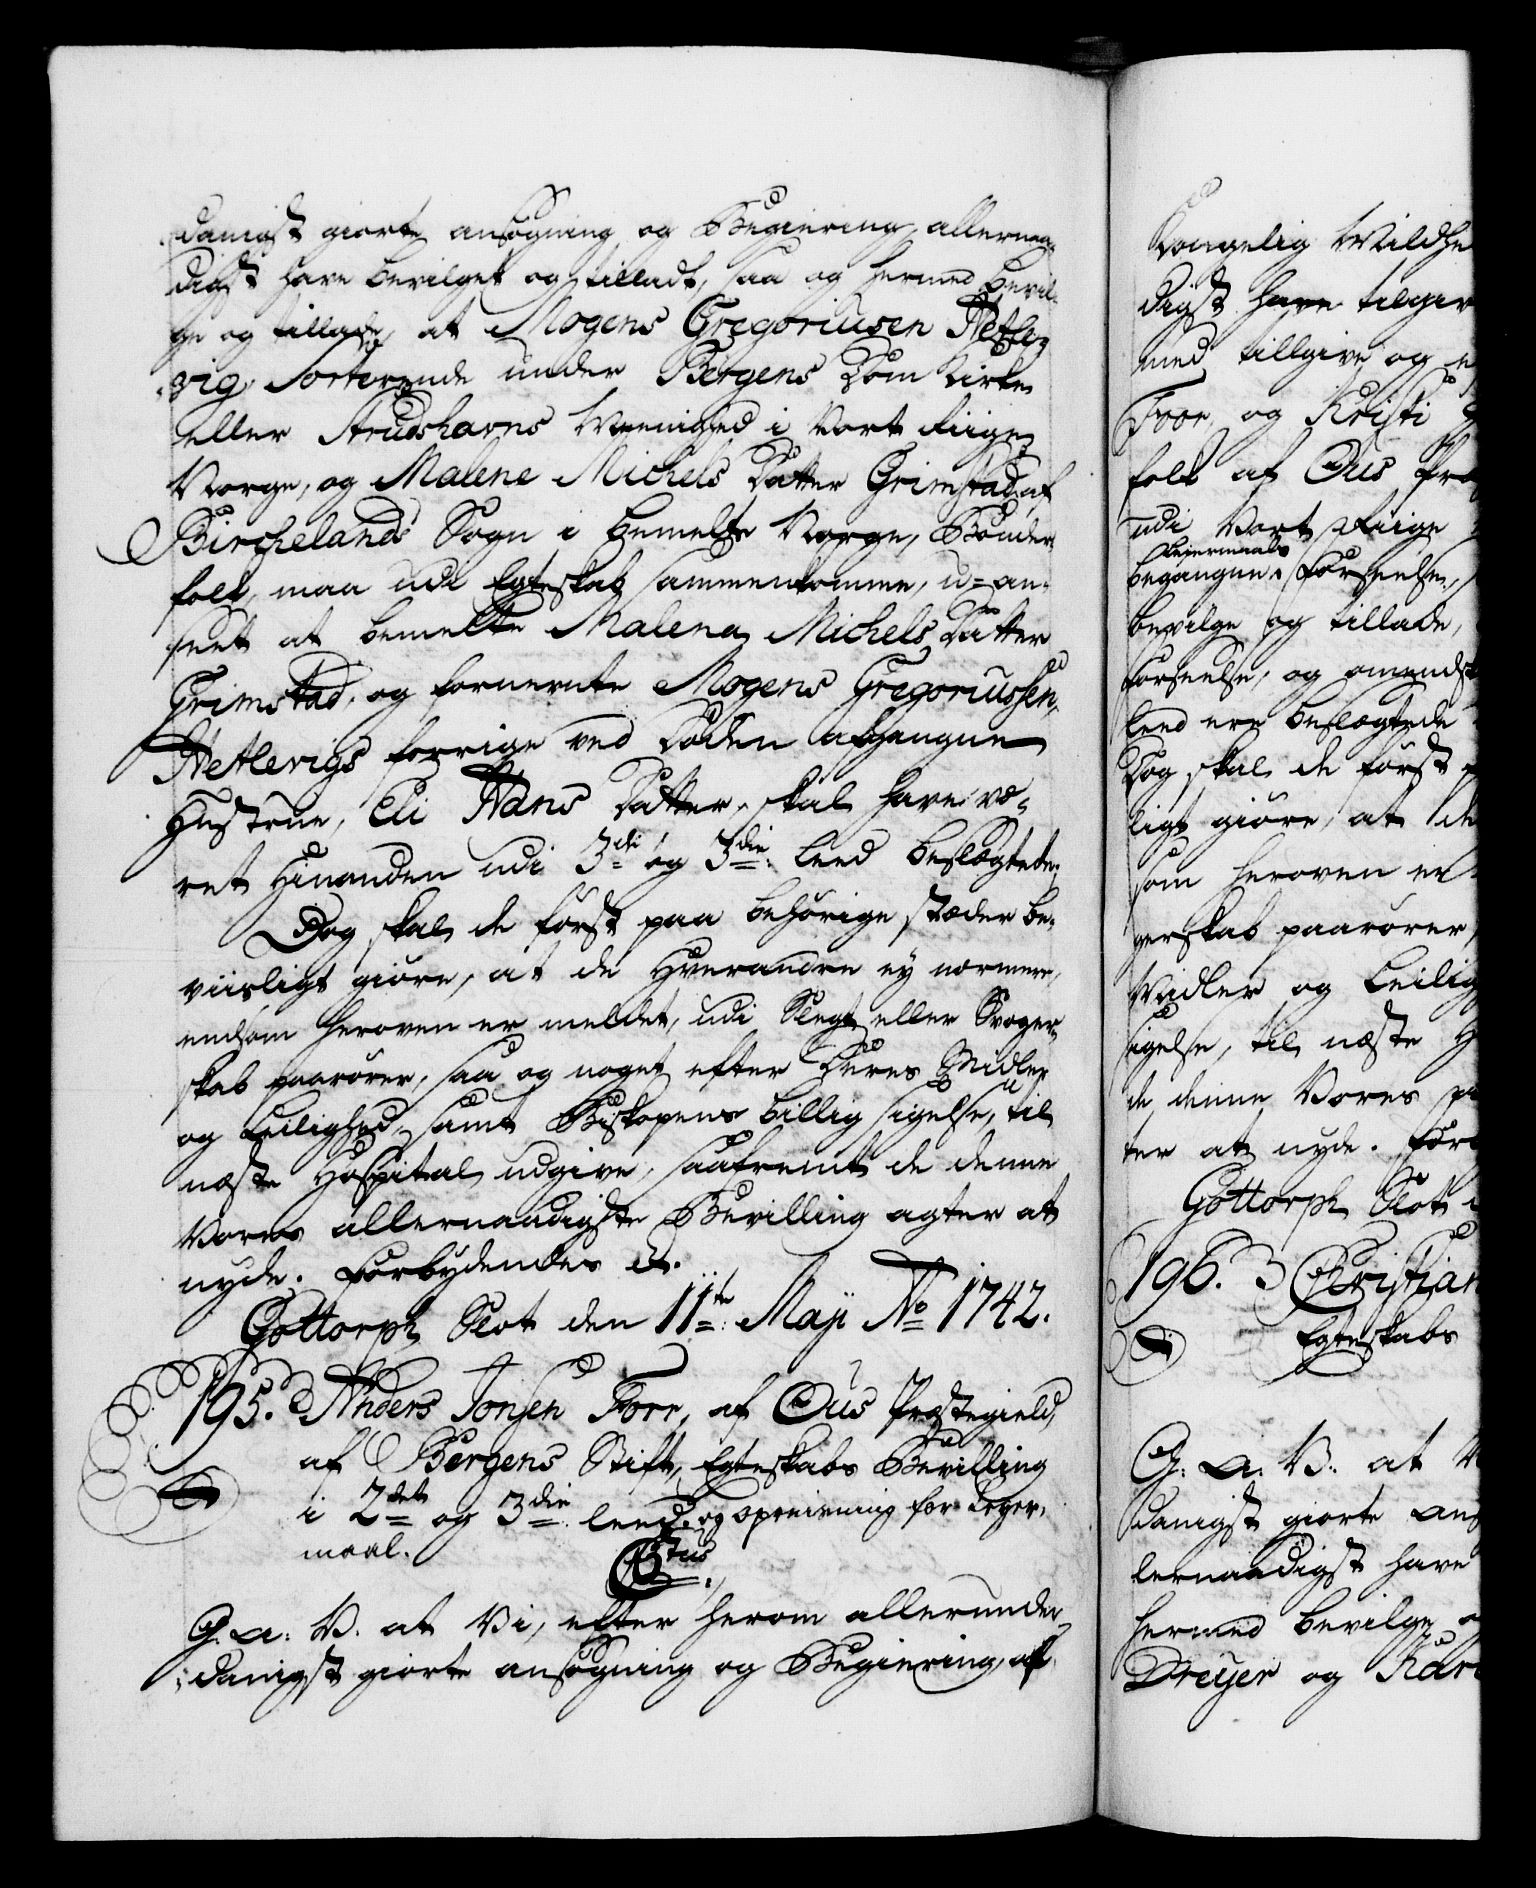 danigst giorte ansøgning og Begiering, allernaa-
digst have bevilget og tilladt, saa og hermed bevil-
ge og tillade, at Mogens Gregoriusen Hetle-
vig, Sorterende under Bergens Dom Kirke
eller Strudshavns Meenighed i Vort Riige
Norge, og Malene Michels Datter Grimstad af
Birchelands Sogn i bemelte Norge, Bønder-
folk, maa udi Egteskab sammenkomme, u-an-
seet at bemelte Malena Michels Datter
Grimstad, og fornevnte Mogens Gregoriussen
Hetlevigs forrige ved Døden afgangne
Hustrue, Eli Hans Datter, skal have væ-
ret hinanden udi 3die og 3die Leed beslægtede;
Dog skal de først paa behørige stæder be-
viisligt giøre, at de hverandre ey nærmere,
end som heroven er meldet, udi Slegt eller Svoger-
skab paarører, saa og noget efter Deres Midler
og Leilighed, samt Biskopens billig sigelse, til
næste Hospital udgive, saafremt de denne
Vores allernaadigste Bevilling agter at
nyde. Forbydendes &.
Gottorph Slot den 11te Maji Ao 1742.
195. Anders Jonsen Forr, af Ous Præstegield,
af Bergens Stift, Egteskabs Bevilling
i 2det og 3die Leed og opreisning for Leyer-
maal.
C6tus.
G. a: V. at Vi, efter herom allerunder-
danigst giorte ansøgning og Begiering, af
Kongelig Mildhe
digst have tilgiv
med tillgive og e
Foor, og Kristi
folk af Ous Præ
udi Vort Riige
Leiermaals
begangne Forseelse,
bevilge og tillade,
Forseelse, og omendsk
leed ere beslægtede
Dog skal de først
ligt giøre, at de
som heroven er
gerskab paarører,
Midler og Leilig
sigelse, til næste H
de denne Vores
ter at nyde. For
Gottorph Slot
196. Christian
Egteskabs
G: a: V: at V
danigst giorte ans
lernaadigst have
hermed bevilge
Dreyer og Kar